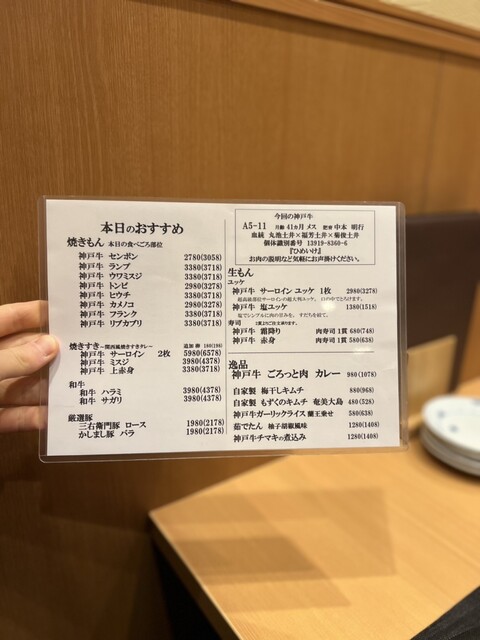 本日のおすすめ
焼きもん 本日の食べごろ部位
神戸牛 センボン 2780(3058)
神戸牛 ランプ 3380(3718)
神戸牛 ウワミスジ 3380(3718)
神戸牛 トンビ 2980(3278)
神戸牛 ヒウチ 3380(3718)
神戸牛 カメノコ 2980(3278)
神戸牛 フランク 3380(3718)
神戸牛 リブカブリ 3380(3718)
焼きすき～関西風焼きすきカレー 追加 卵 180(198)
神戸牛 サーロイン 2枚 5980(6578)
神戸牛 ミスジ 3980(4378)
神戸牛 上赤身 3380(3718)
和牛
和牛 ハラミ 3980(4378)
和牛 サガリ 3980(4378)
厳選豚
三右衛門豚 ロース 1980(2178)
かしまし豚 バラ 1980(2178)
今回の神戸牛
A5-11 月齢 41カ月 メス 肥育 中本 明行
血統 丸池土井×福芳土井×菊俊土井
個体識別番号 13919-8360-6
『ひめいけ』
お肉の説明など気軽にお声掛けください。
生もん
ユッケ
神戸牛 サーロイン ユッケ 1枚 2980(3278)
超高級部位サーロインの超大判ユッケ。 口の中でとろけます。
神戸牛 塩ユッケ 1380(1518)
塩でシンプルに肉の甘みを。 すだちを絞って。
寿司 1貫よりご注文頂けます。
神戸牛 霜降り 肉寿司 1貫 680(748)
神戸牛 赤身 肉寿司 1貫 580(638)
逸品
神戸牛 ごろっと肉 カレー 980(1078)
自家製 梅干しキムチ 880(968)
自家製 もずくのキムチ 奄美大島 480(528)
神戸牛ガーリックライス 蘭王乗せ 580(638)
茹でたん 柚子胡椒風味 1280(1408)
神戸牛チマキの煮込み 1280(1408)